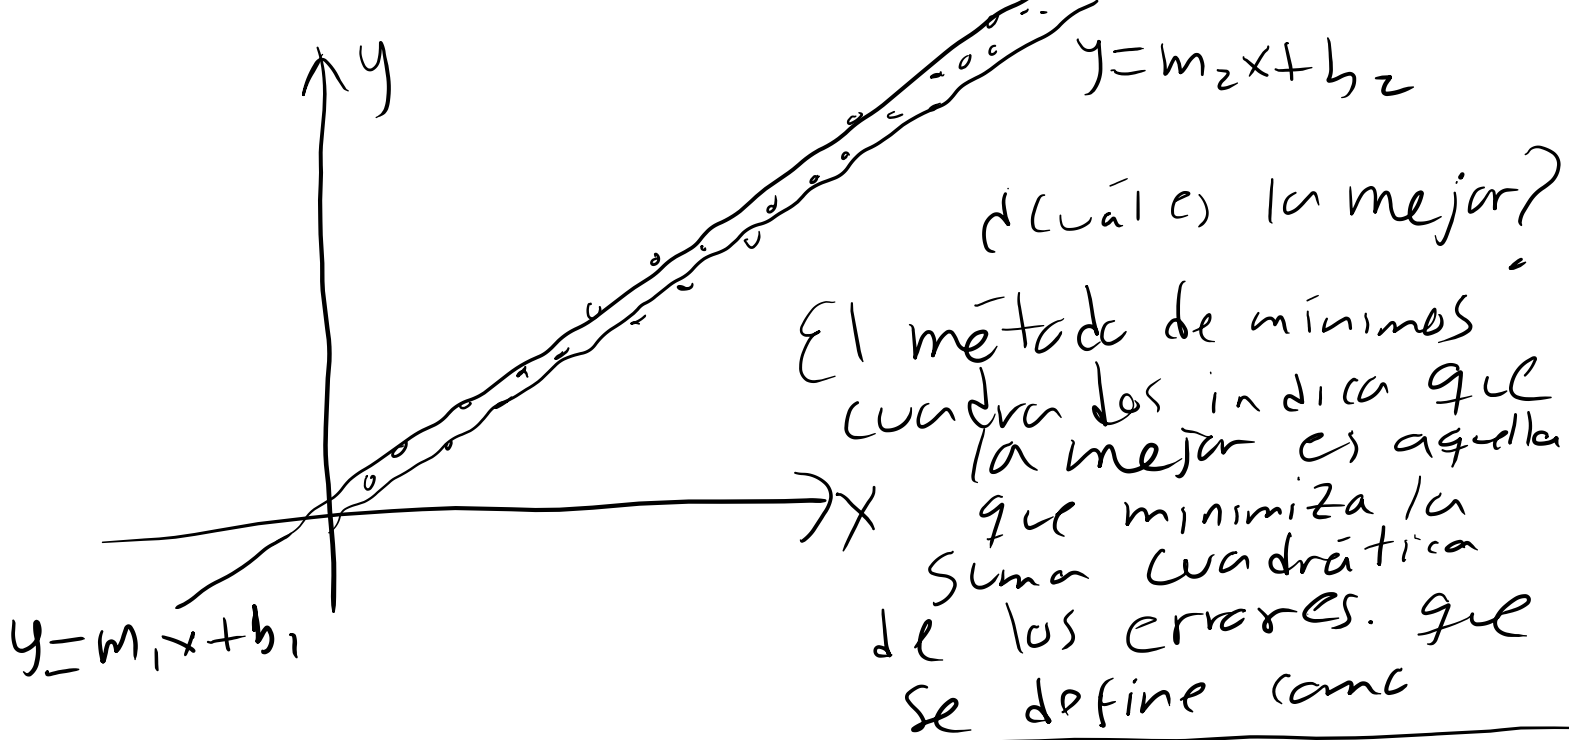 y
y=m₂x+b₂
¿Cuál es la mejor?
El método de mínimos
cuadrados indica que
la mejor es aquella
x
que minimiza la
suma cuadrática
de los errores. que
y=m₁x+b₁
se define como